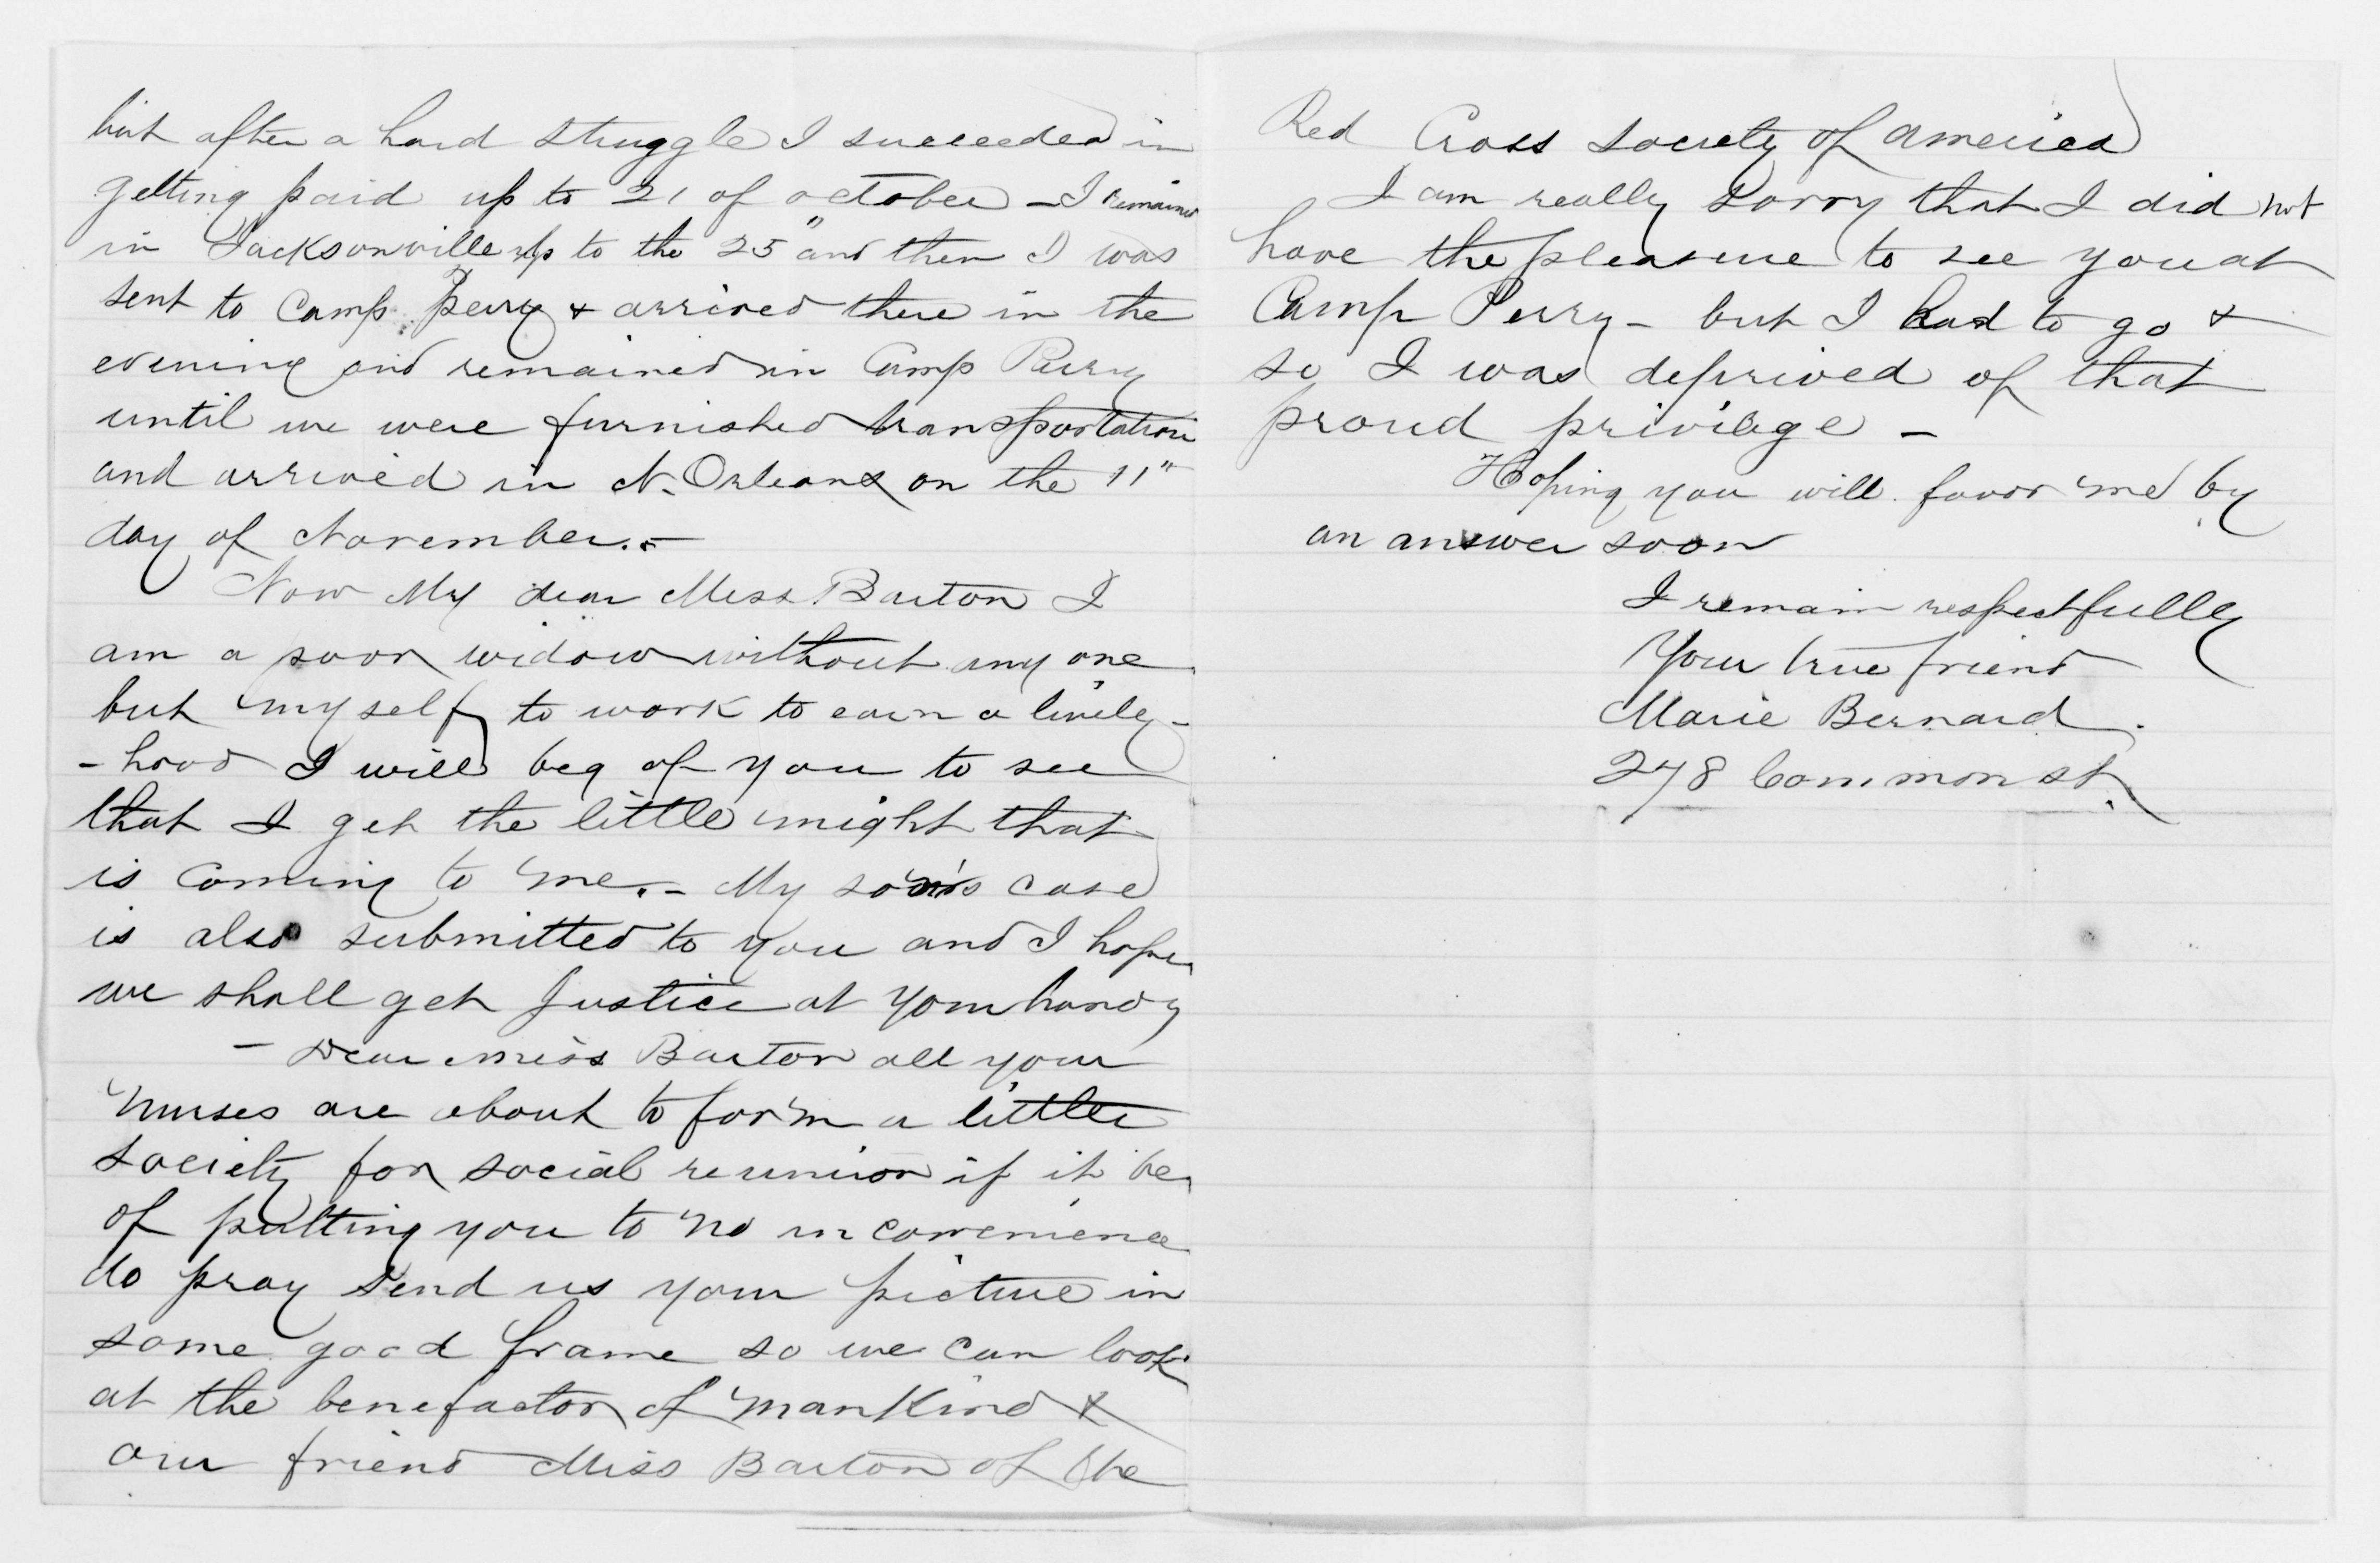 but after a hard struggle I succeeded in
getting paid up to 21 of october - I remained
in Jacksonville up to the 25" and then I was
sent to Camp Perry & arrived there in the
evening and remained in Camp Perry
until we were furnished transportation
and arrived in N. Orleans on the 11"
day of November. -
Now My dear Miss Barton I
am a poor widow without any one
but myself to work to earn a lively-
- hood I will beg of you to see
that I get the little might that
is coming to me. - My son's case
is also submitted to you and I hope
we shall get Justice at your hands
- Dear Miss Barton all your
nurses are about to form a little
society for social reunion if it be
of putting you to no inconvenience
do pray send us your picture in
some good frame so we can look
at the benefactor of mankind &
our friend Miss Barton of the
Red Cross Society of America
I am really sorry that I did not
have the pleasure to see you at
Camp Perry - but I had to go &
so I was deprived of that
proud privilage -
Hoping you will favor me by
an answer soon
I remain respectfully
Your true friend
Marie Bernard.
278 Common st.